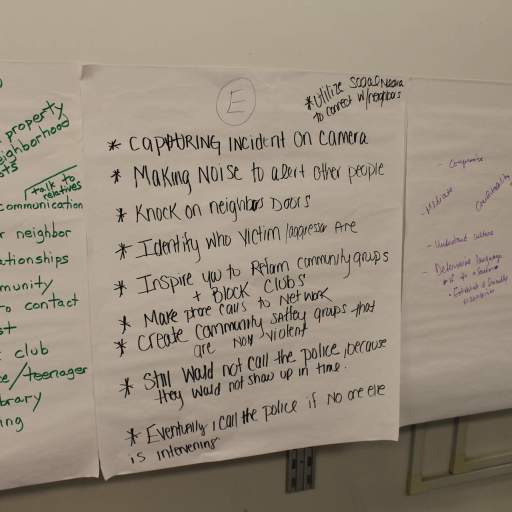 property
neighborhood
talk to
relatives
communication
neighbor
club
/teenager
to contact
E
*Utilize Social Media
to connect w/neighbors
* CAPTURING INCIDENT ON CAMERA
* MAKING NOISE to alert other people
* KNOCK ON NEIGHBORS DOORS
* Identify WHO VICTIM/aggressor ARE
* Inspire you to Reform community groups
+ BLOCK CLUBS
* Make phone calls to Network
* Create community saftey groups that
are Non violent
* Still Would not call the police, because
they would not show up in time.
* Eventually, I call the police if no one else
is intervening
- Compromise
- Mediate
- Understand culture
- Determine language